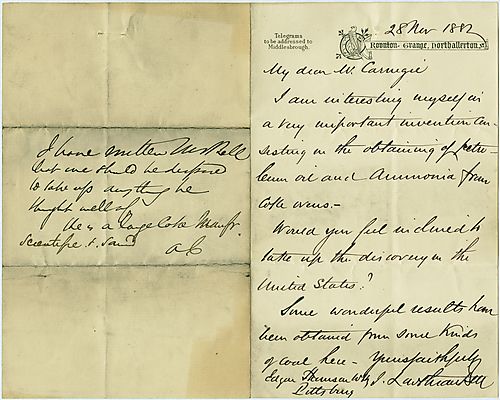 I have written Mr Bell
but one should be disposed
to take up anything he
thought well of
He is a large Coke Manufr
Scientific &
AC
Telegrams
to be addressed to
Middlesbrough.
Rounton Grange, Northallerton.
28 Nov 1882
My dear Mr Carnegie
I am interesting myself in
a very important invention con-
sisting in the obtaining of petro-
leum oil and Ammonia from
Coke ovens -
Would you feel inclined to
take up the discovery in the
United States?
Some wonderful results have
been obtained from some kinds
of coal here - Yours faithfully
I. Lowthian Bell
Edgar Thomson Wks
Pittsburg